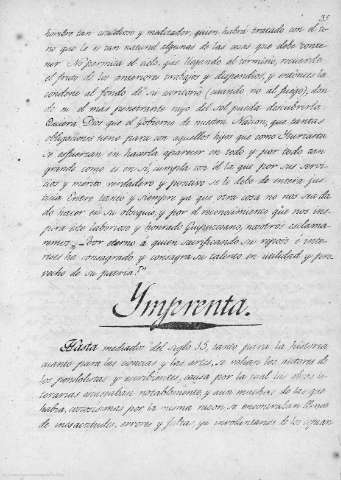 95
hombre tan erudito y matizador, quien habrá tratado con el to-
no que le es tan natural algunas de las cosas que debe conte-
ner. No permita el cielo, que llegando al termino, recuerde
el fruto de los anteriores trabajos y dispendios, y entonces la
condene al fondo de su escritorio (cuando no al fuego), don-
de ni el mas penetrante rayo del sol pueda descubrirla.
Quiera Dios que el gobierno de nuestra Nacion, que tantas
obligaciones tiene para con aquellos hijos que como Iturriza
se esfuerzan en hacerla aparecer en todo y por todo tan
grande como es en sí, cumpla con él la que por sus servi-
cios y merito verdadero y positivo se le debe de entera jus-
ticia. Entre tanto y siempre ya que otra cosa no nos sea da-
do hacer en su obsequio, y por el reconocimiento que nos ins-
pira este laborioso y honrado Guipuzcoano, nosotros exclama-
remos: "Loor eterno á quien sacrificando su reposo é inte-
reses ha consagrado y consagra su talento en utilidad y pro-
vecho de su patria!"
Ymprenta.
Hasta mediados del siglo 15, tanto para la historia
cuanto para las ciencias y las artes, se valian los autores de
los pendolistas y escribientes, causa por la cual las obras li-
terarias escaseaban notablemente, y aun muchas de las que
habia, carisimas por la misma razon, se encontraban llenas
de inexactitudes, errores y faltas, ya involuntarias de los copian-